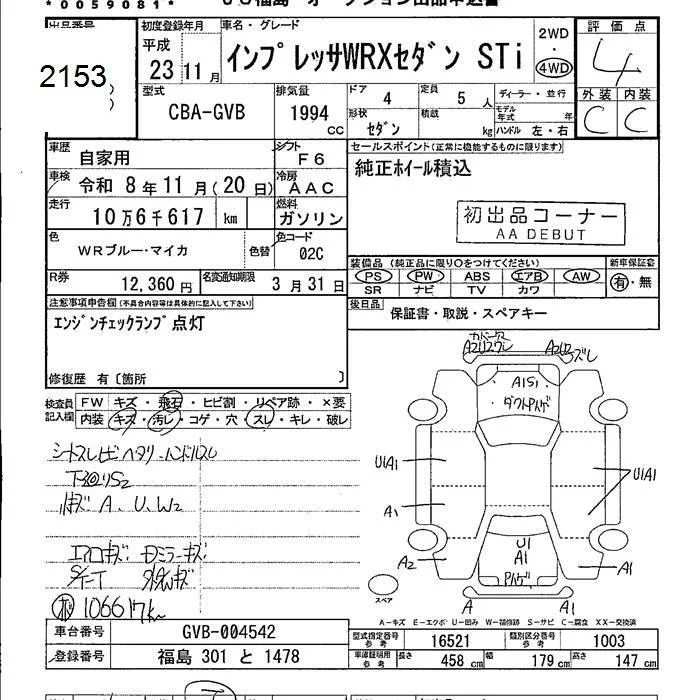 *0059081*
出品番号
2153
初度登録年月
平成
23 11 月
車名・グレード
インプレッサWRXセダン STi
2WD
・
4WD
評価点
4
外装 内装
C C
型式
CBA-GVB
排気量
1994
cc
ドア 4
形状 セダン
定員 5 人
積載 kg
ディーラー・並行
モデル年式 年
ハンドル 左・右
車歴 自家用
シフト F6
車検 令和 8年11月(20日)
冷房 AAC
走行 10万6千617 km
燃料 ガソリン
色 WRブルー・マイカ
色替
色コード 02C
R券 12,360円
名変通知期限 3月31日
セールスポイント(正常に機能するものに限ります)
純正ホイール積込
初出品コーナー
AA DEBUT
装備品 (純正品に限り○をつけてください)
PS PW ABS エアB AW
SR ナビ TV カワ
新車保証書
有・無
後日品 保証書・取説・スペアキー
注意事項申告欄(不具合内容等は具体的に記入して下さい)
エンジンチェックランプ点灯
修復歴 有〔箇所 〕
検査員記入欄
FW キズ・飛石・ヒビ割・リペア跡・×要
内装 キズ・汚レ・コゲ・穴・スレ・キレ・破レ
A、U、W2
106617km
A2
A1S1
U1A1
A1
U1A1
A2
U1
A1
A1
A
A1
スペア
A-キズ E-エクボ U-凹み W-補修跡 S-サビ C-腐食 XX-交換済
車台番号 GVB-004542
登録番号 福島 301 と 1478
型式指定番号 参考 16521
類別区分番号 参考 1003
車庫証明用 参考 長さ 458 cm 幅 179 cm 高さ 147 cm